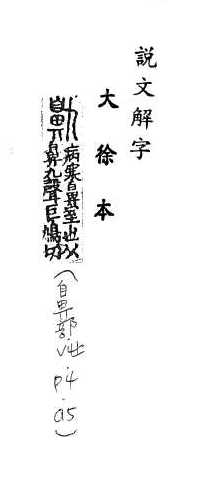 説文解字
大徐本
鼽
病寒鼻窒也从
鼻九聲巨鳩切
(鼻部
p.4
a5)